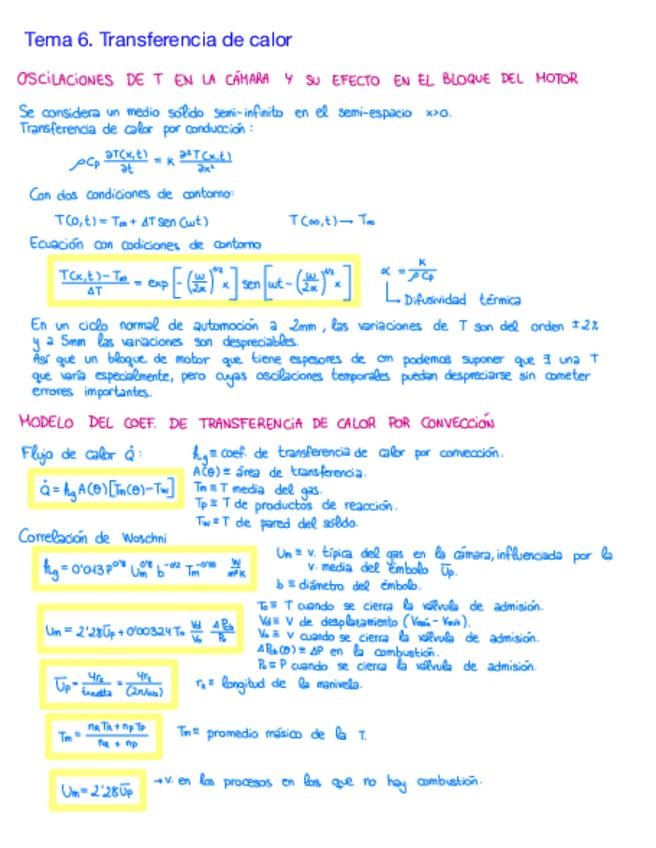 Tema 6. Transferencia de calor
OSCILACIONES DE T EN LA CÁMARA Y SU EFECTO EN EL BLOQUE DEL MOTOR
Se considera un medio sólido semi-infinito en el semi-espacio x>0.
Transferencia de calor por conducción:
ρCp ∂T(x,t)/∂t = K ∂²T(x,t)/∂x²
Con dos condiciones de contorno:
T(0,t) = T∞ + ΔT sen(ωt) T(∞,t) → T∞
Ecuación con codiciones de contorno
(T(x,t) - T∞)/ΔT = exp[-(ω/2α)^1/2 x] sen[ωt - (ω/2α)^1/2 x] α = K/ρCp
Difusividad térmica
En un ciclo normal de automoción a 2mm, las variaciones de T son del orden ±2%
y a 5mm las variaciones son despreciables.
Así que un bloque de motor que tiene espesores de cm podemos suponer que ∃ una T
que varía especialmente, pero cuyas oscilaciones temporales puedan despreciarse sin cometer
errores importantes.
MODELO DEL COEF. DE TRANSFERENCIA DE CALOR POR CONVECCIÓN
Flujo de calor Q̇: hg ≡ coef. de transferencia de calor por convección.
A(θ) ≡ área de transferencia.
Q̇ = hg A(θ)[Tm(θ) - Tw] Tm ≡ T media del gas.
Tp ≡ T de productos de reacción.
Tw ≡ T de pared del sólido.
Correlación de Woschni
hg = 0'013 P^0'8 Um^0'8 b^-0'2 Tm^-0'55 W/m²K Um ≡ v. típica del gas en la cámara, influenciada por la
v. media del émbolo Ūp.
b ≡ diámetro del émbolo.
To ≡ T cuando se cierra la válvula de admisión.
Um = 2'28Ūp + 0'00324 To Vd/Vo ΔPcb/Po Vd ≡ V de desplazamiento
Vo ≡ V cuando se cierra la válvula de admisión.
ΔPcb(θ) ≡ ΔP en la combustión.
Po ≡ P cuando se cierra la válvula de admisión.
Ūp = 4 / = 4 /
≡ longitud de la manivela.
Tm = (nR TR + np Tp)/(nR + np) Tm ≡ promedio másico de la T.
Um = 2'28Ūp → v. en los procesos en los que no hay combustión.